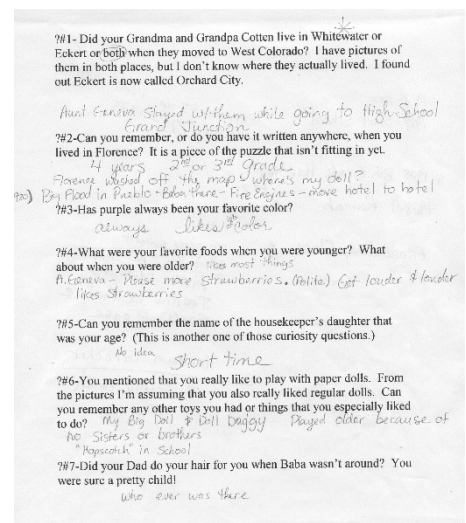 ?#1- Did your Grandma and Grandpa Cotten live in Whitewater or
Eckert or both when they moved to West Colorado? I have pictures of
them in both places, but I don't know where they actually lived. I found
out Eckert is now called Orchard City.
Aunt Geneva stayed w/them while going to High School
Grand Junction
?#2-Can you remember, or do you have it written anywhere, when you
lived in Florence? It is a piece of the puzzle that isn't fitting in yet.
4 years 2nd or 3rd grade
Florence washed off the map - where's my doll?
Big Flood in Pueblo - Baba there - Fire Engines - move hotel to hotel
?#3-Has purple always been your favorite color?
always likes color
?#4-What were your favorite foods when you were younger? What
about when you were older? likes most things
A. Geneva - Please more strawberries. (Polite) Get louder & louder
likes Strawberries
?#5-Can you remember the name of the housekeeper's daughter that
was your age? (This is another one of those curiosity questions.)
No idea
Short time
?#6-You mentioned that you really like to play with paper dolls. From
the pictures I'm assuming that you also really liked regular dolls. Can
you remember any other toys you had or things that you especially liked
to do? My Big Doll & Doll Buggy Played older because of
no Sisters or brothers
"Hopscotch" in School
?#7-Did your Dad do your hair for you when Baba wasn't around? You
were sure a pretty child!
who ever was there